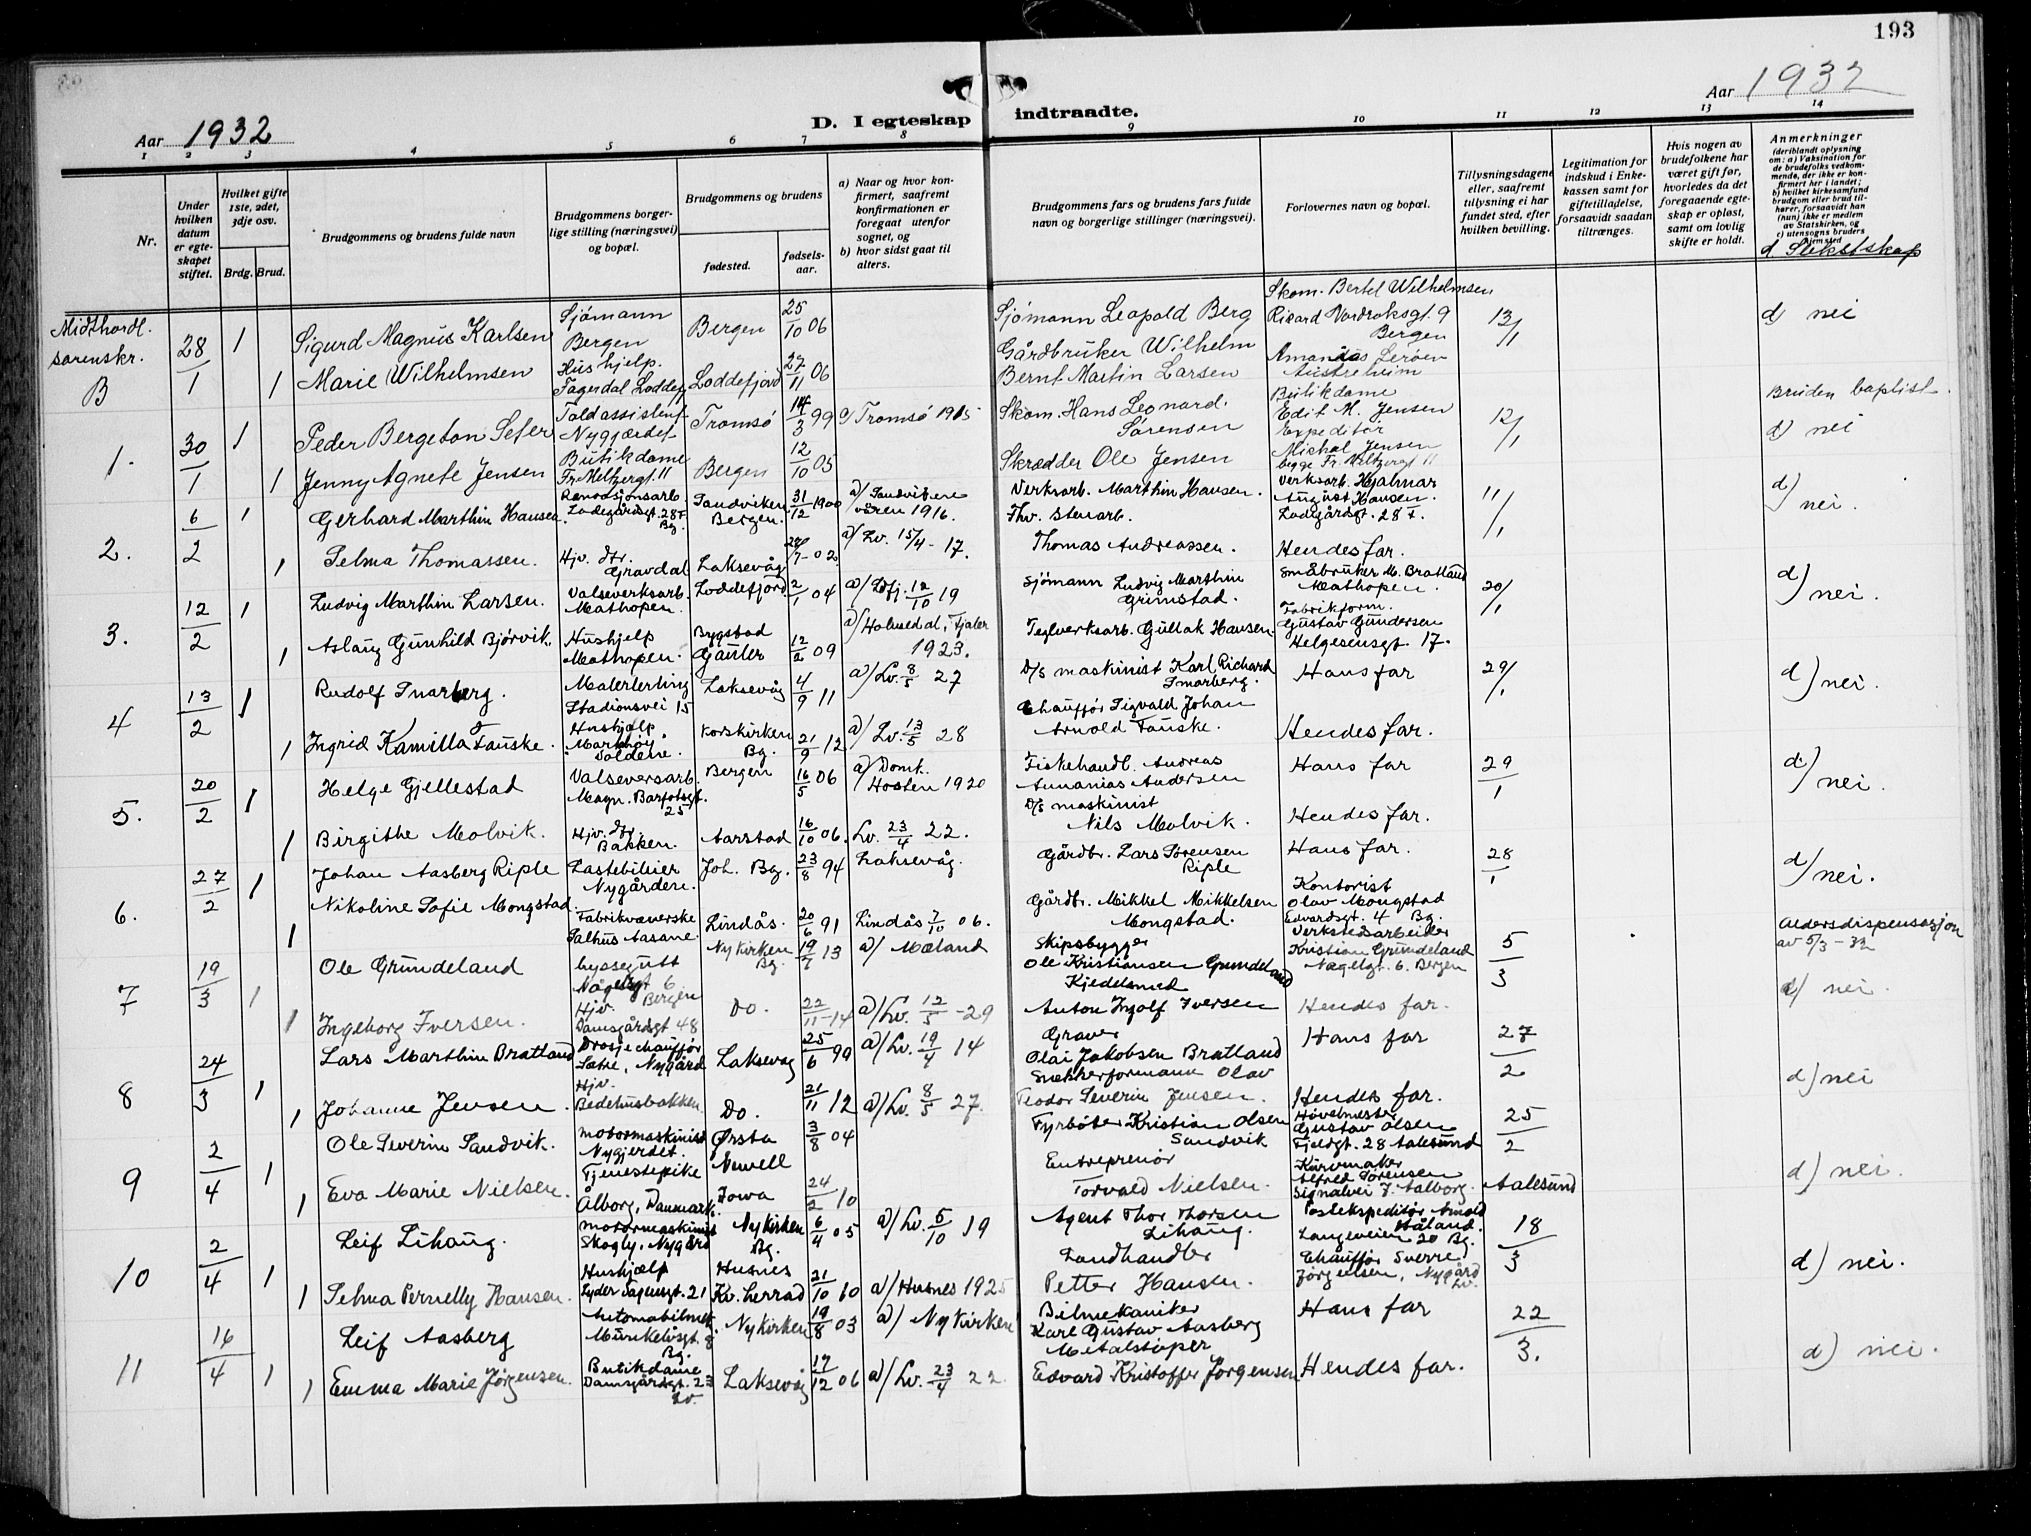 193
Aar 1932
D. I egteskap indtraadte.
Aar 1932
1 2 3 4 5 6 7 8 9 10 11 12 13 14
Nr.
Under hvilken datum er egteskapet stiftet.
Hvilket gifte 1ste, 2det, 3dje osv.
Brdg. Brud.
Brudgommens og brudens fulde navn
Brudgommens borgerlige stilling (næringsvei) og bopæl.
Brudgommens og brudens
fødested.
fødselsaar.
a) Naar og hvor konfirmert, saafremt konfirmationen er foregaat utenfor sognet, og
b) hvor sidst gaat til alters.
Brudgommens fars og brudens fars fulde navn og borgerlige stillinger (næringsvei).
Forlovernes navn og bopæl.
Tillysningsdagene eller, saafremt tillysning ei har fundet sted, efter hvilken bevilling.
Legitimation for indskud i Enkekassen samt for giftetilladelse, forsaavidt saadan tiltrænges.
Hvis nogen av brudefolkene har været gift før, hvorledes da det foregaaende egteskap er opløst, samt om lovlig skifte er holdt.
Anmerkninger
(deriblandt oplysning om: a) Vaksination for de brudefolks vedkommende, der ikke er konfirmert her i landet; b) hvilket kirkesamfund brudgom eller brud tilhører, forsaavidt han (hun) ikke er medlem av Statskirken, og c) utensogns bruders hjemsted
d Slektskap
Midthordl. sorenskr. B 28/1 1 Sigurd Magnus Karlsen Sjömann Bergen Bergen 25/10 06 Sjömann Leopold Berg Skom. Bertel Wilhelmsen Ricard Nordraksgt. 9 Bergen 13/1 d) nei
1 Marie Wilhelmsen Hushjelp. Fagerdal Loddefj Loddefjord 27/11 06 Gårdbruker Wilhelm Bernt Martin Larsen Amanias Leröen Austreheim Bruden baptist.
1. 30/1 1 Peder Bergeton Sefer Toldassistent Nygjerdet Tromsö 14/3 99 a) Tromsö 1915 Skom. Hans Leonard Sörensen Butikdame Edit M. Jensen 12/1 d) nei
1 Jenny Agnete Jensen Butikdame Fr. Meltzergt. 11 Bergen 12/10 05 Skrædder Ole Jensen Expeditör Michal Jensen begge Fr. Meltzergt 11
2. 6/2 1 Gerhard Marthin Hansen. Renovsjonsarb. Ladegårdsgt. 28 I Bg. Sandviken Bergen. 31/12 1900 a) Sandviken våren 1916. Verksarb. Marthin Hansen. Verksarb. Hjalmar August Hansen. Ladegårdsgt. 28 I. 11/1 d) nei.
1 Selma Thomassen. Hjv. dtr. Gravdal Laksevåg 02 a) Lv. 15/4 - 17. Fhv. stenarb. Thomas Andreassen. Hendes far.
3. 12/2 1 Ludvig Marthin Larsen. Valseverksarb. Mathopen. Loddefjord 2/1 04 a) Ldfj. 12/10 19 Sjömann Ludvig Marthin Grimstad. Småbruker M. Bratland Mathopen. 20/1 d) nei.
1 Aslaug Gunhild Bjørvik. Hushjelp Mathopen. Bygstad Gauler 12/2 09 a) Holmedal, Fjaler 1923. Teglverksarb. Gullak Hansen. Fabrikform. Gustav Gundersen Helgesensgt. 17.
4 13/2 1 Rudolf Snarberg. Malerlerling Stadionsvei 15 Laksevåg 4/9 11 a) Lv. 8/5 27 D/s maskinist Karl Richard Smarberg. Hans far 29/1 d) nei.
1 Ingrid Kamilla Fauske. Hushjelp. Marihøy, Soldene. Korskirken Bg. 21/9 12 a) Lv. 13/5 28 Chauffør Sigvald Johan Arnold Fauske. Hendes far.
5. 20/2 1 Helge Gjellestad Valseversarb. Magn. Barfotsgt. 25 Bergen 16/5 06 a) Domk. Hosten 1920 Fiskehandl. Andreas Annanias Andersen Hans far 29/1 d) nei.
1 Birgithe Molvik. Hjv. dtr. Bakken. Aarstad 16/10 06. Lv. 23/4 22. D/s maskinist Nils Molvik. Hendes far.
6. 27/2 1 Johan Aasberg Riple Lastebileier Nygården. Joh. Bg. 23/8 94 Laksevåg. Gårdbr. Lars Sørensen Riple Hans far. 28/1 d) nei.
1 Nikoline Sofie Mongstad. Fabrikvæverske Salhus Aasane. Lindås. 20/6 91 Lindås 7/10 06. Gårdbr. Mikkel Mikkelsen Mongstad. Kontorist Olav Mongstad Edvardsgt. 4 Bg. Aldersdispensasjon av 5/3-32
7 19/3 1 Ole Grundeland hyssegutt Nøgelsgt 6 Bergen Nykirken Bg. 19/7 13 a) Mæland Skipsbygger Ole Kristiansen Grundeland Verkstedsarbeider Kristian Grundeland Nøgelgt. 6. Bergen 5/3 d) nei.
1 Ingeborg Iversen. Hjv. Damsgårdsgt 48 Do. 22/11-14 a) Lv. 12/5-29 Kjedelsmed Anton Ingolf Iversen Hendes far.
8 24/3 1 Lars Marthin Bratland Drosjechauffør Sætre, Nygård Laksevåg 25/6 99 a) Lv. 19/4 14 Graver Olai Jakobsen Bratland Hans far 27/2 d) nei
1 Johanne Jensen. Hjv. Bedehusbakken. Do. 21/11 12 a) Lv. 8/5 27. Snekkerformann Olav Teodor Severin Jensen. Hendes far.
9 2/4 1 Ole Severin Sandvik. motormaskinist Nygjerdet. Ørsta 3/8 04 Fyrbøter Kristian Olsen Sandvik Høvelmester Gustav Olsen Fjeldgt. 28 Aalesund 25/2 d) nei.
1 Eva Marie Nielsen. Tjenestepike Ålborg, Danmark. Newell Iowa 24/2 10 Entreprenør Torvald Nielsen. Kurvmaker Alfred Sørensen Signalvei 7. Aalborg. Aalesund
10 2/4 1 Leif Lihaug. motormaskinist Skogly, Nygård Nykirken Bg. 6/4 05 a) Lv. 5/10 19 Agent Thor Thorsen Lihaug. Postekspeditør Arnold Håland. Langeveien 20 Bg. 18/3 d) nei.
1 Selma Pernelly Hansen. Hushjælp Lyder Sagensgt. 21 Husnes Kv. herrad 21/10 10 a) Husnes 1925 Landhandler Petter Hansen. Chauffør Sverre Jørgensen, Nygård Lv.
11 16/4 1 Leif Aasberg Automobilmek. Munkebotsgt. 8 Bg. Nykirken 19/8 03 a) Nykirken Bilmekaniker Karl Gustav Aasberg Hans far 22/3. d) nei.
1 Emma Marie Jørgensen. Butikdame Damsgårdsgt. 23 Lv. Laksevåg 17/12 06 a) Lv. 23/4 22. Metalstøper Edvard Kristoffer Jørgensen Hendes far.